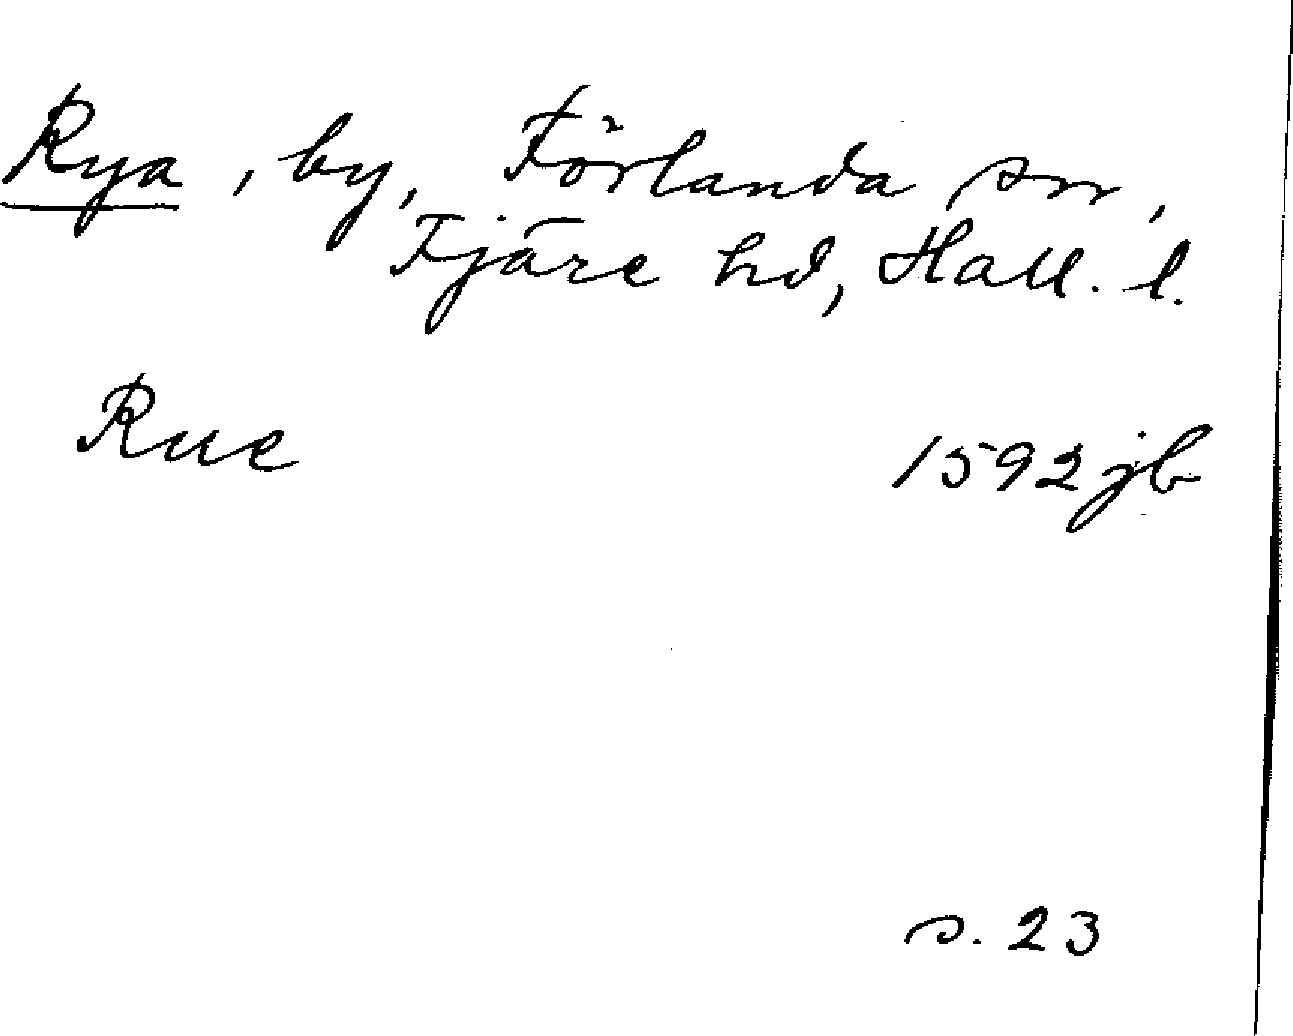 Rya, by, Förlanda sn,
Fjäre hd, Hall. l.
Rue 1592 jb
s. 23